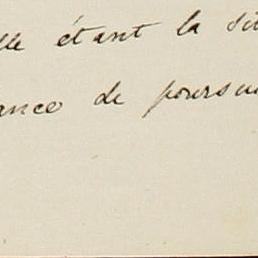 lle étant la si
ance de poursu